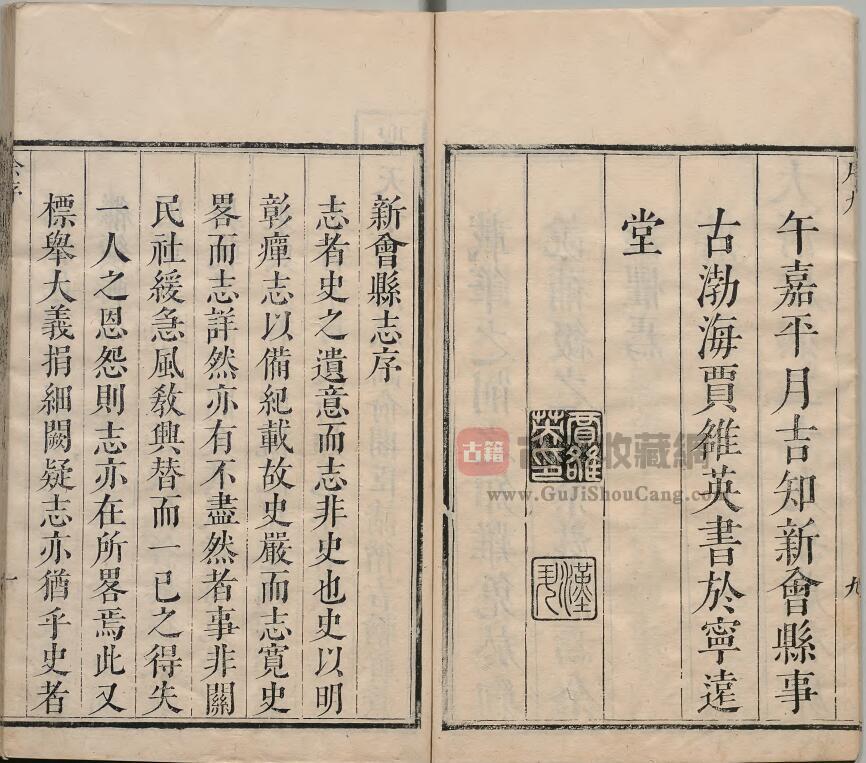 午嘉平月吉知新會縣事
古渤海賈雒英書於寧遠
堂
賈雒
英印
漢
新會縣志序
志者史之遺意而志非史也史以明
彰癉志以備紀載故史嚴而志寬史
畧而志詳然亦有不盡然者事非關
民社緩急風教興替而一已之得失
一人之恩怨則志亦在所畧焉此又
標舉大義捐細闕疑志亦猶乎史者
序
九
一
古籍
收藏網
www.GuJiShouCang.com